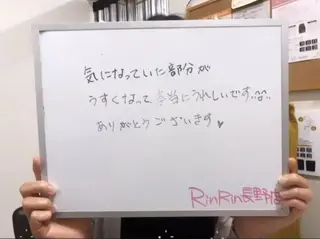 気になっていた部分が
うすくなって本当にうれしいです..^^..
ありがとうございます♥
RinRin長野店